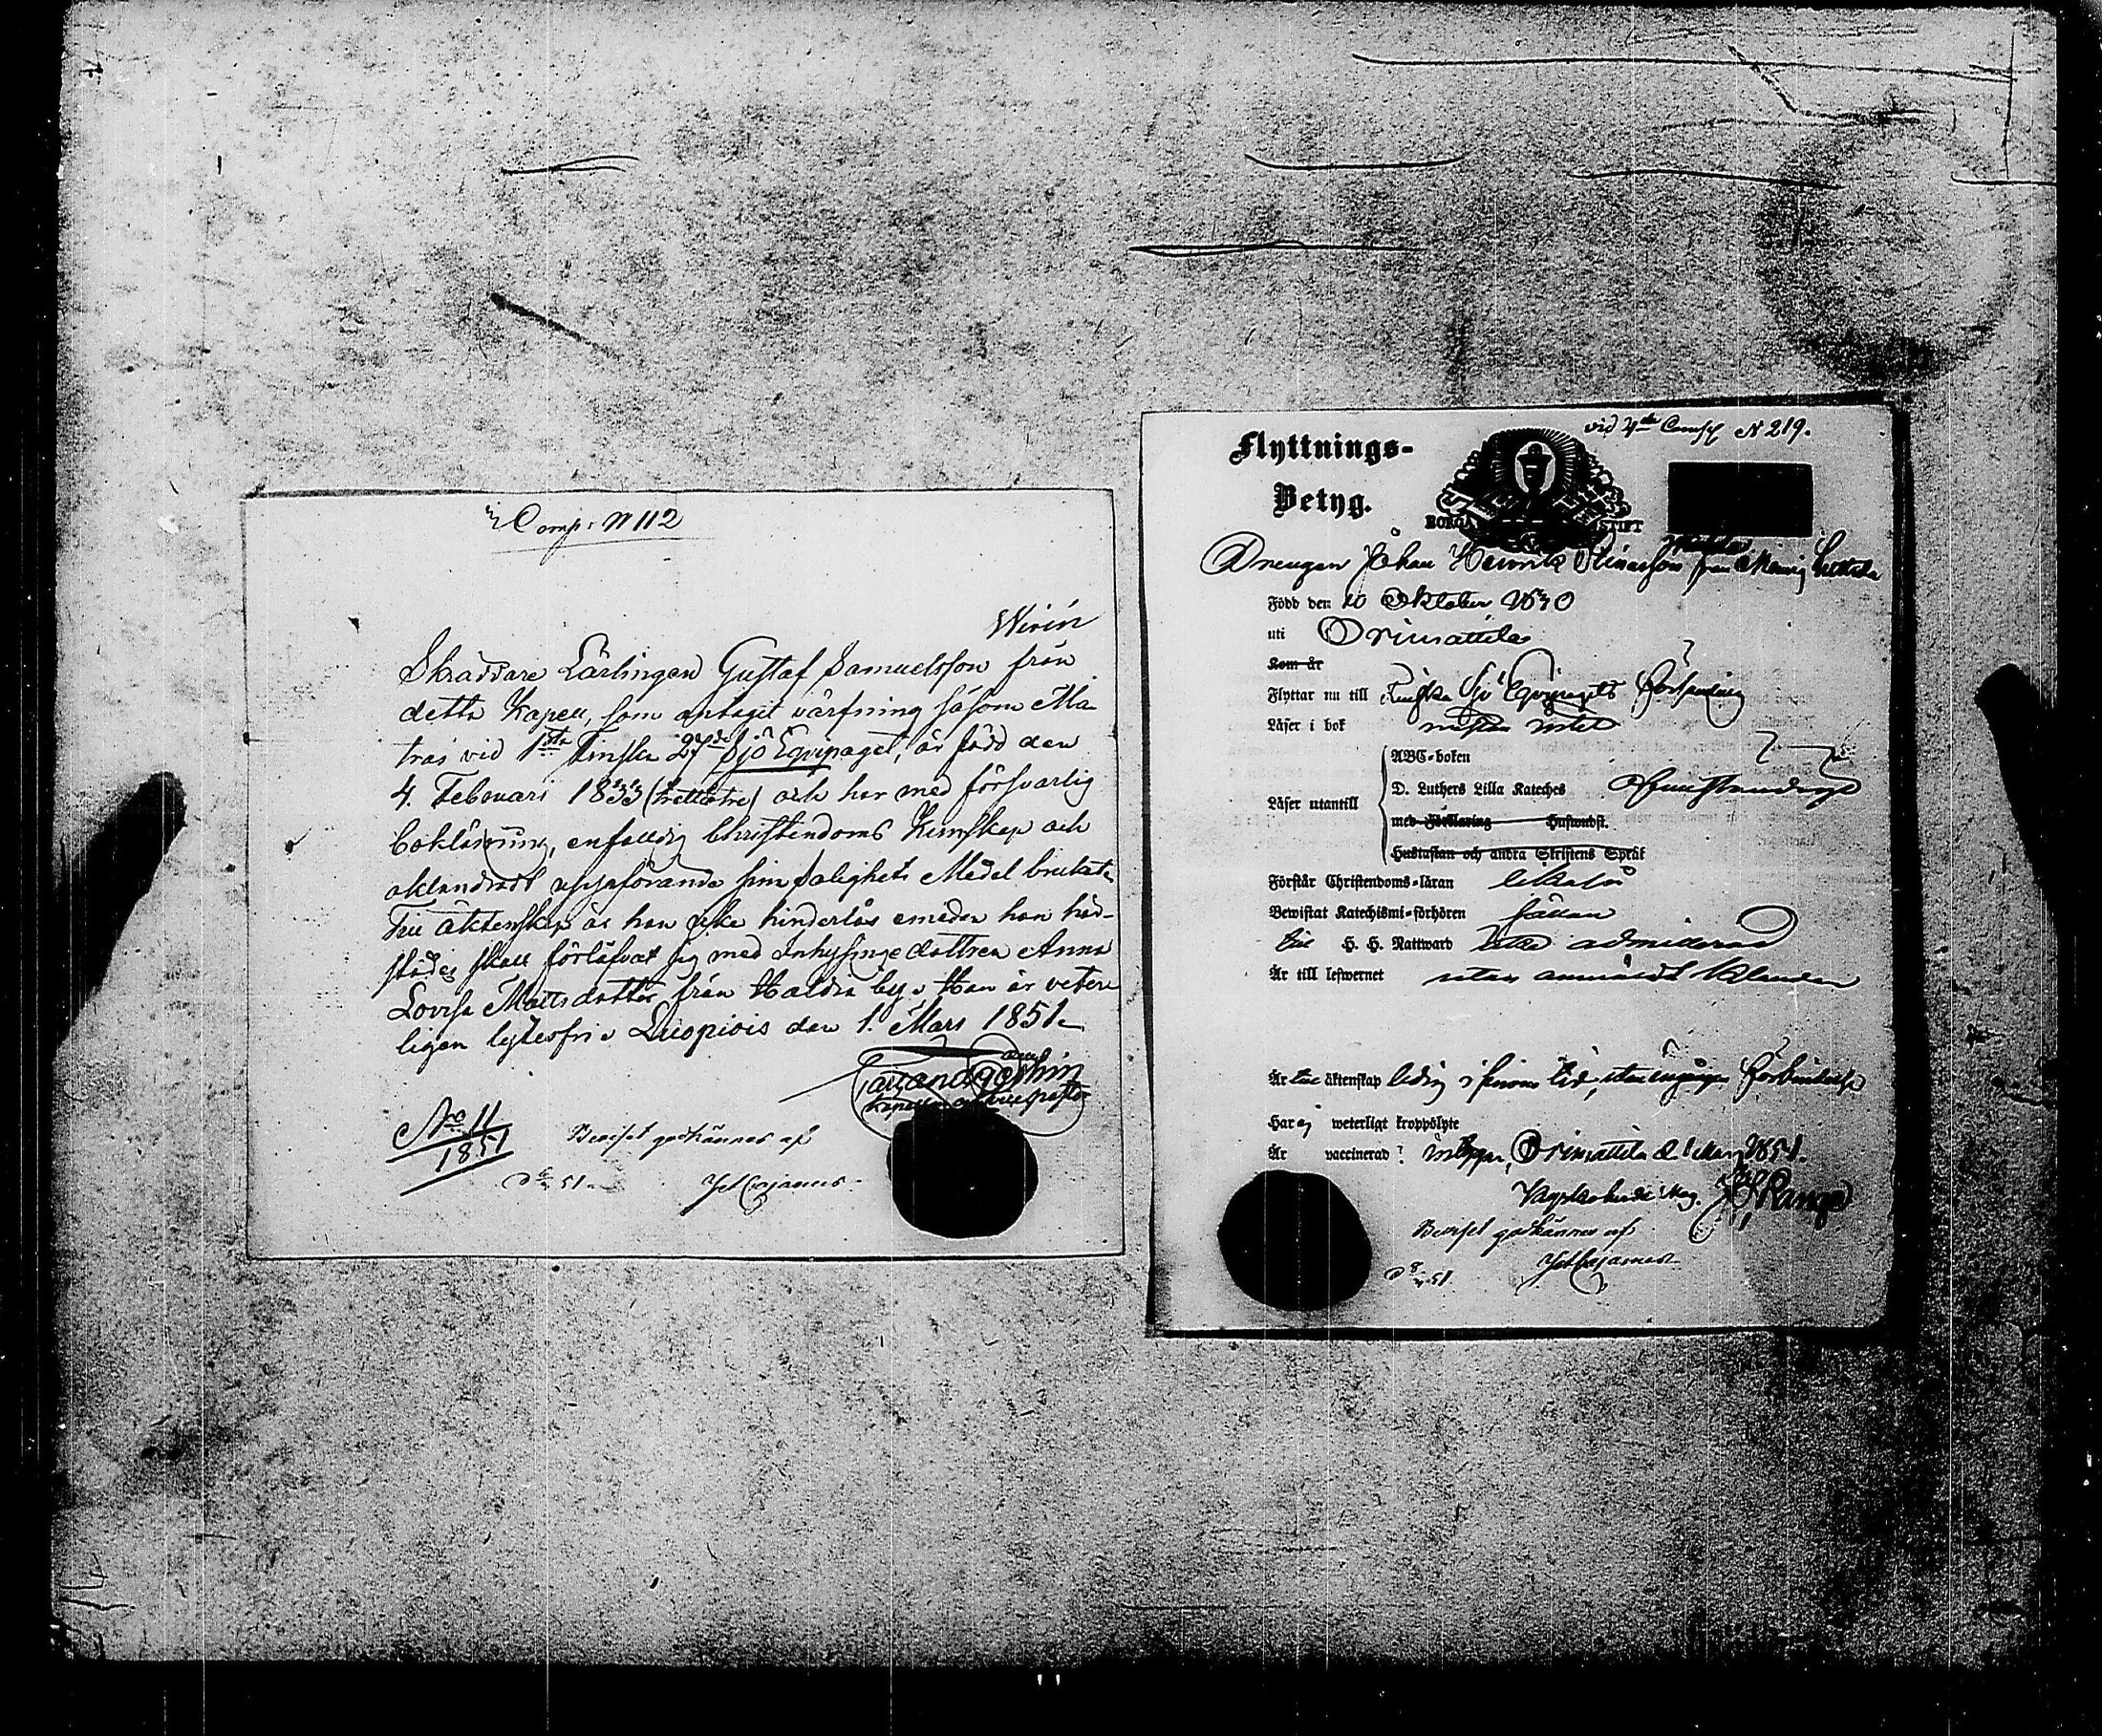 Comp: N 112
Wirén
Skräddare Lärlingen Gustaf Samuelsson från
detta Kapell, som antagit värfning såsom Ma
tros vid 1sta Finska Sjö Equipaget, är född den
4. Februari 1833 (trettiotre) och har med försvarlig
boklärning, enfaldig Christendoms Kunskap och
oklandradt uppförande sina salighets Medel brukat.
Till äktenskap är han icke hinderlös emedan han här-
städes skall förlofvat sig med Inhysinge dottren Anna
Lovisa Mattsdotter från Haldia by. Han är veter
ligen lytesfri. Luopiois den 1. Mars 1851.
No 11
1851
Beviset godkännes af
51.
Cajanus.
vid 4de Comp N 219.
Flyttnings-
Betyg.
BORGÅ STIFT
Drengen Johan Henrik från
Född den 10 Oktober 1830
uti Orimattila
Kom år
Flyttar nu till Finska Sjö Equipagets
Läser i bok nästan intet
Läser utantill
ABC-boken
D. Luthers Lilla Kateches
med Förklaring Huswudst.
Hustaflan och andra Skriftens Språk
Förstår Christendoms-läran likaså
Bewistat Katechismi-förhören sällan
till H. H. Nattward icke admitterad
Är till lefwernet utan anmärkt klander
Är till äktenskap ledig i sinom tid, utan ingången förbindelse
Har ej weterligt kroppslyte
Är vaccinerad? intygar, Orimattila d. 1 Mars 1851.
Beviset godkännes af
51.
Cajanus